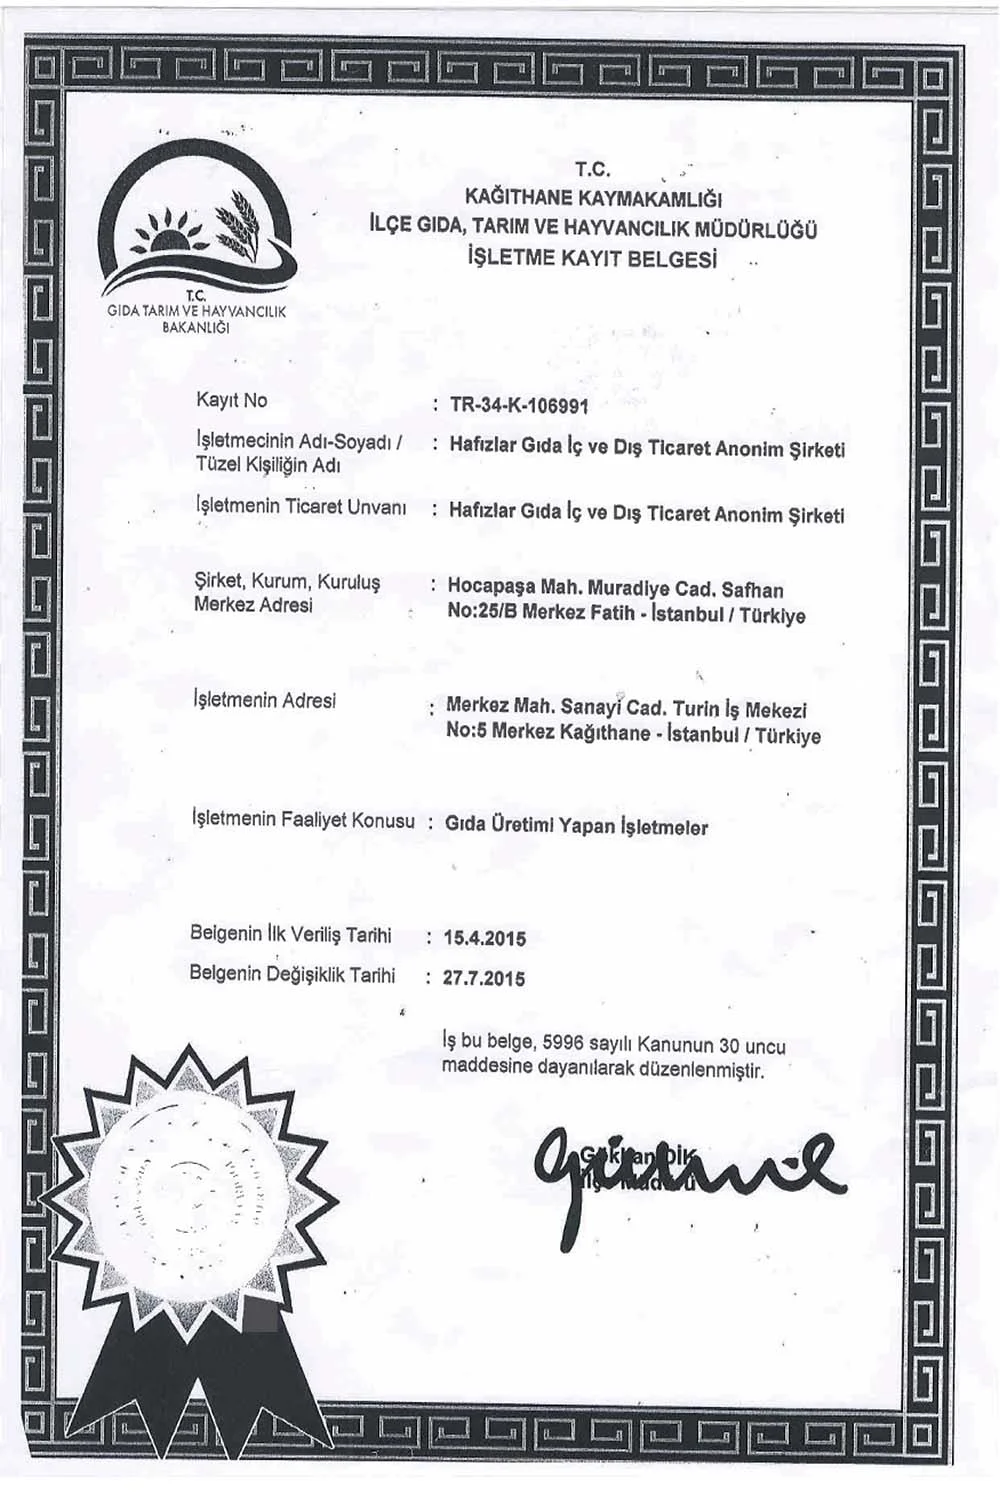 T.C.
KAĞITHANE KAYMAKAMLIĞI
İLÇE GIDA, TARIM VE HAYVANCILIK MÜDÜRLÜĞÜ
İŞLETME KAYIT BELGESİ
T.C.
GIDA TARIM VE HAYVANCILIK
BAKANLIĞI
Kayıt No : TR-34-K-106991
İşletmecinin Adı-Soyadı / : Hafızlar Gıda İç ve Dış Ticaret Anonim Şirketi
Tüzel Kişiliğin Adı
İşletmenin Ticaret Unvanı : Hafızlar Gıda İç ve Dış Ticaret Anonim Şirketi
Şirket, Kurum, Kuruluş : Hocapaşa Mah. Muradiye Cad. Safhan
Merkez Adresi No:25/B Merkez Fatih - İstanbul / Türkiye
İşletmenin Adresi : Merkez Mah. Sanayi Cad. Turin İş Mekezi
No:5 Merkez Kağıthane - İstanbul / Türkiye
İşletmenin Faaliyet Konusu : Gıda Üretimi Yapan İşletmeler
Belgenin İlk Veriliş Tarihi : 15.4.2015
Belgenin Değişiklik Tarihi : 27.7.2015
İş bu belge, 5996 sayılı Kanunun 30 uncu
maddesine dayanılarak düzenlenmiştir.